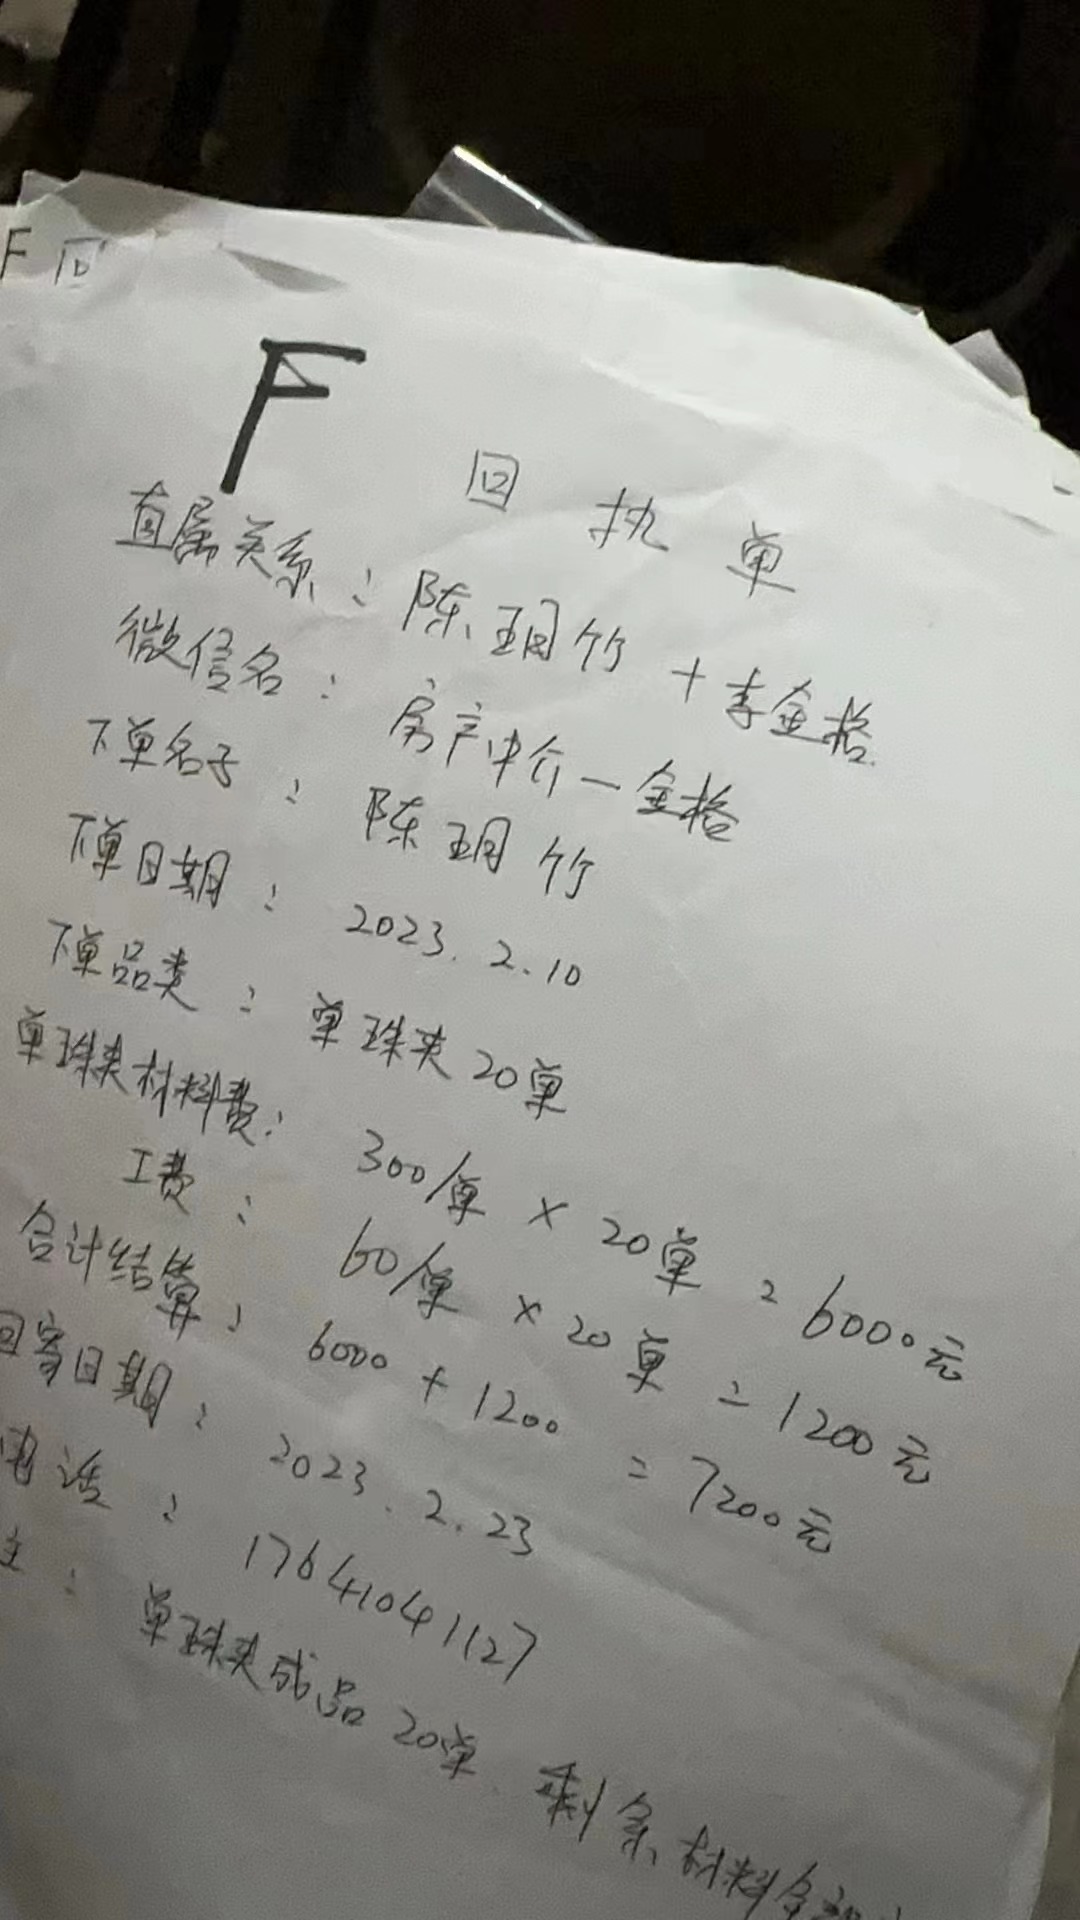 F 回
F
回执单
直属关系：陈玥竹+李金格
微信名：房产中介一金格
下单名子：陈玥竹
下单日期：2023.2.10
下单品类：单珠夹20单
单珠夹材料费：300/单×20单=6000元
工费：60/单×20单=1200元
合计结算：6000+1200=7200元
回寄日期：2023.2.23
电话：17641041127
：单珠夹成品20单.剩余材料全部